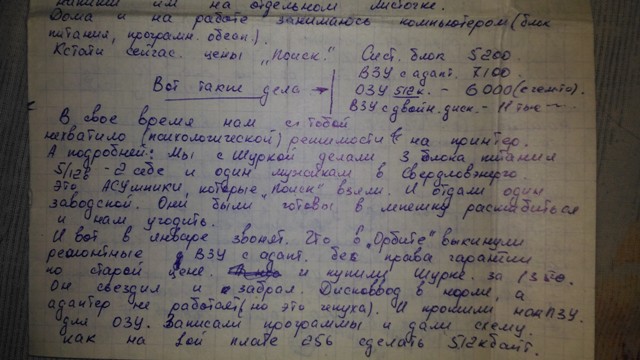 напиши им на отдельном листочке.
Дома и на работе занимаюсь компьютером (блок
питания, программ. обесп.).
Кстати сейчас. цены „Поиск." Сист. блок 5200.
ВЗУ с адапт. 7100.
Вот такие дела → ОЗУ 512к. - 6000 (с чемто).
ВЗУ с двойн. диск. - 11 тыс
В свое время нам с тобой
нехватило (психологической) решимости на принтер.
А подробней: Мы с Шуркой делали 3 блока питания
5/12в - 2 себе и один мужикам в Свердловэнерго.
Это АСУшники, которые „Поиск" взяли. И отдали один
заводской. Они были готовы в лепешку расшибиться
и нам угодить.
И вот в январе звонят. Что в „Орбите" выкинули
ремонтные ВЗУ с адапт. без права гарантии
по старой цене. и купили Шурке. за
Он съездил и забрал. Дисковод в норме, а
адаптер не работает (но это чепуха). И прошили нам ПЗУ.
для ОЗУ. Записали программы и дали схему.
как на 1ой плате 256 сделать 512кбайт.